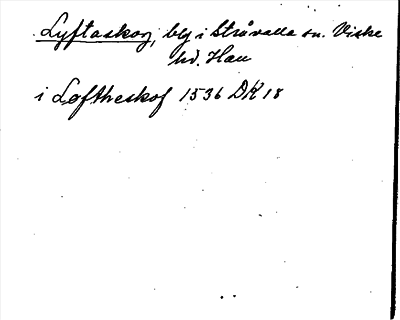 Lyftaskog, by i Stråvalla sn. Viske
hd. Hall
i Loftheskof 1536 DK 18